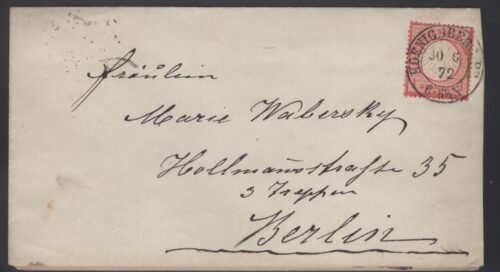 KOENIGSBERG PR
30 6
72
Fräulein
Marie Wabersky
Hollmannstraße 35
3 Treppen
Berlin